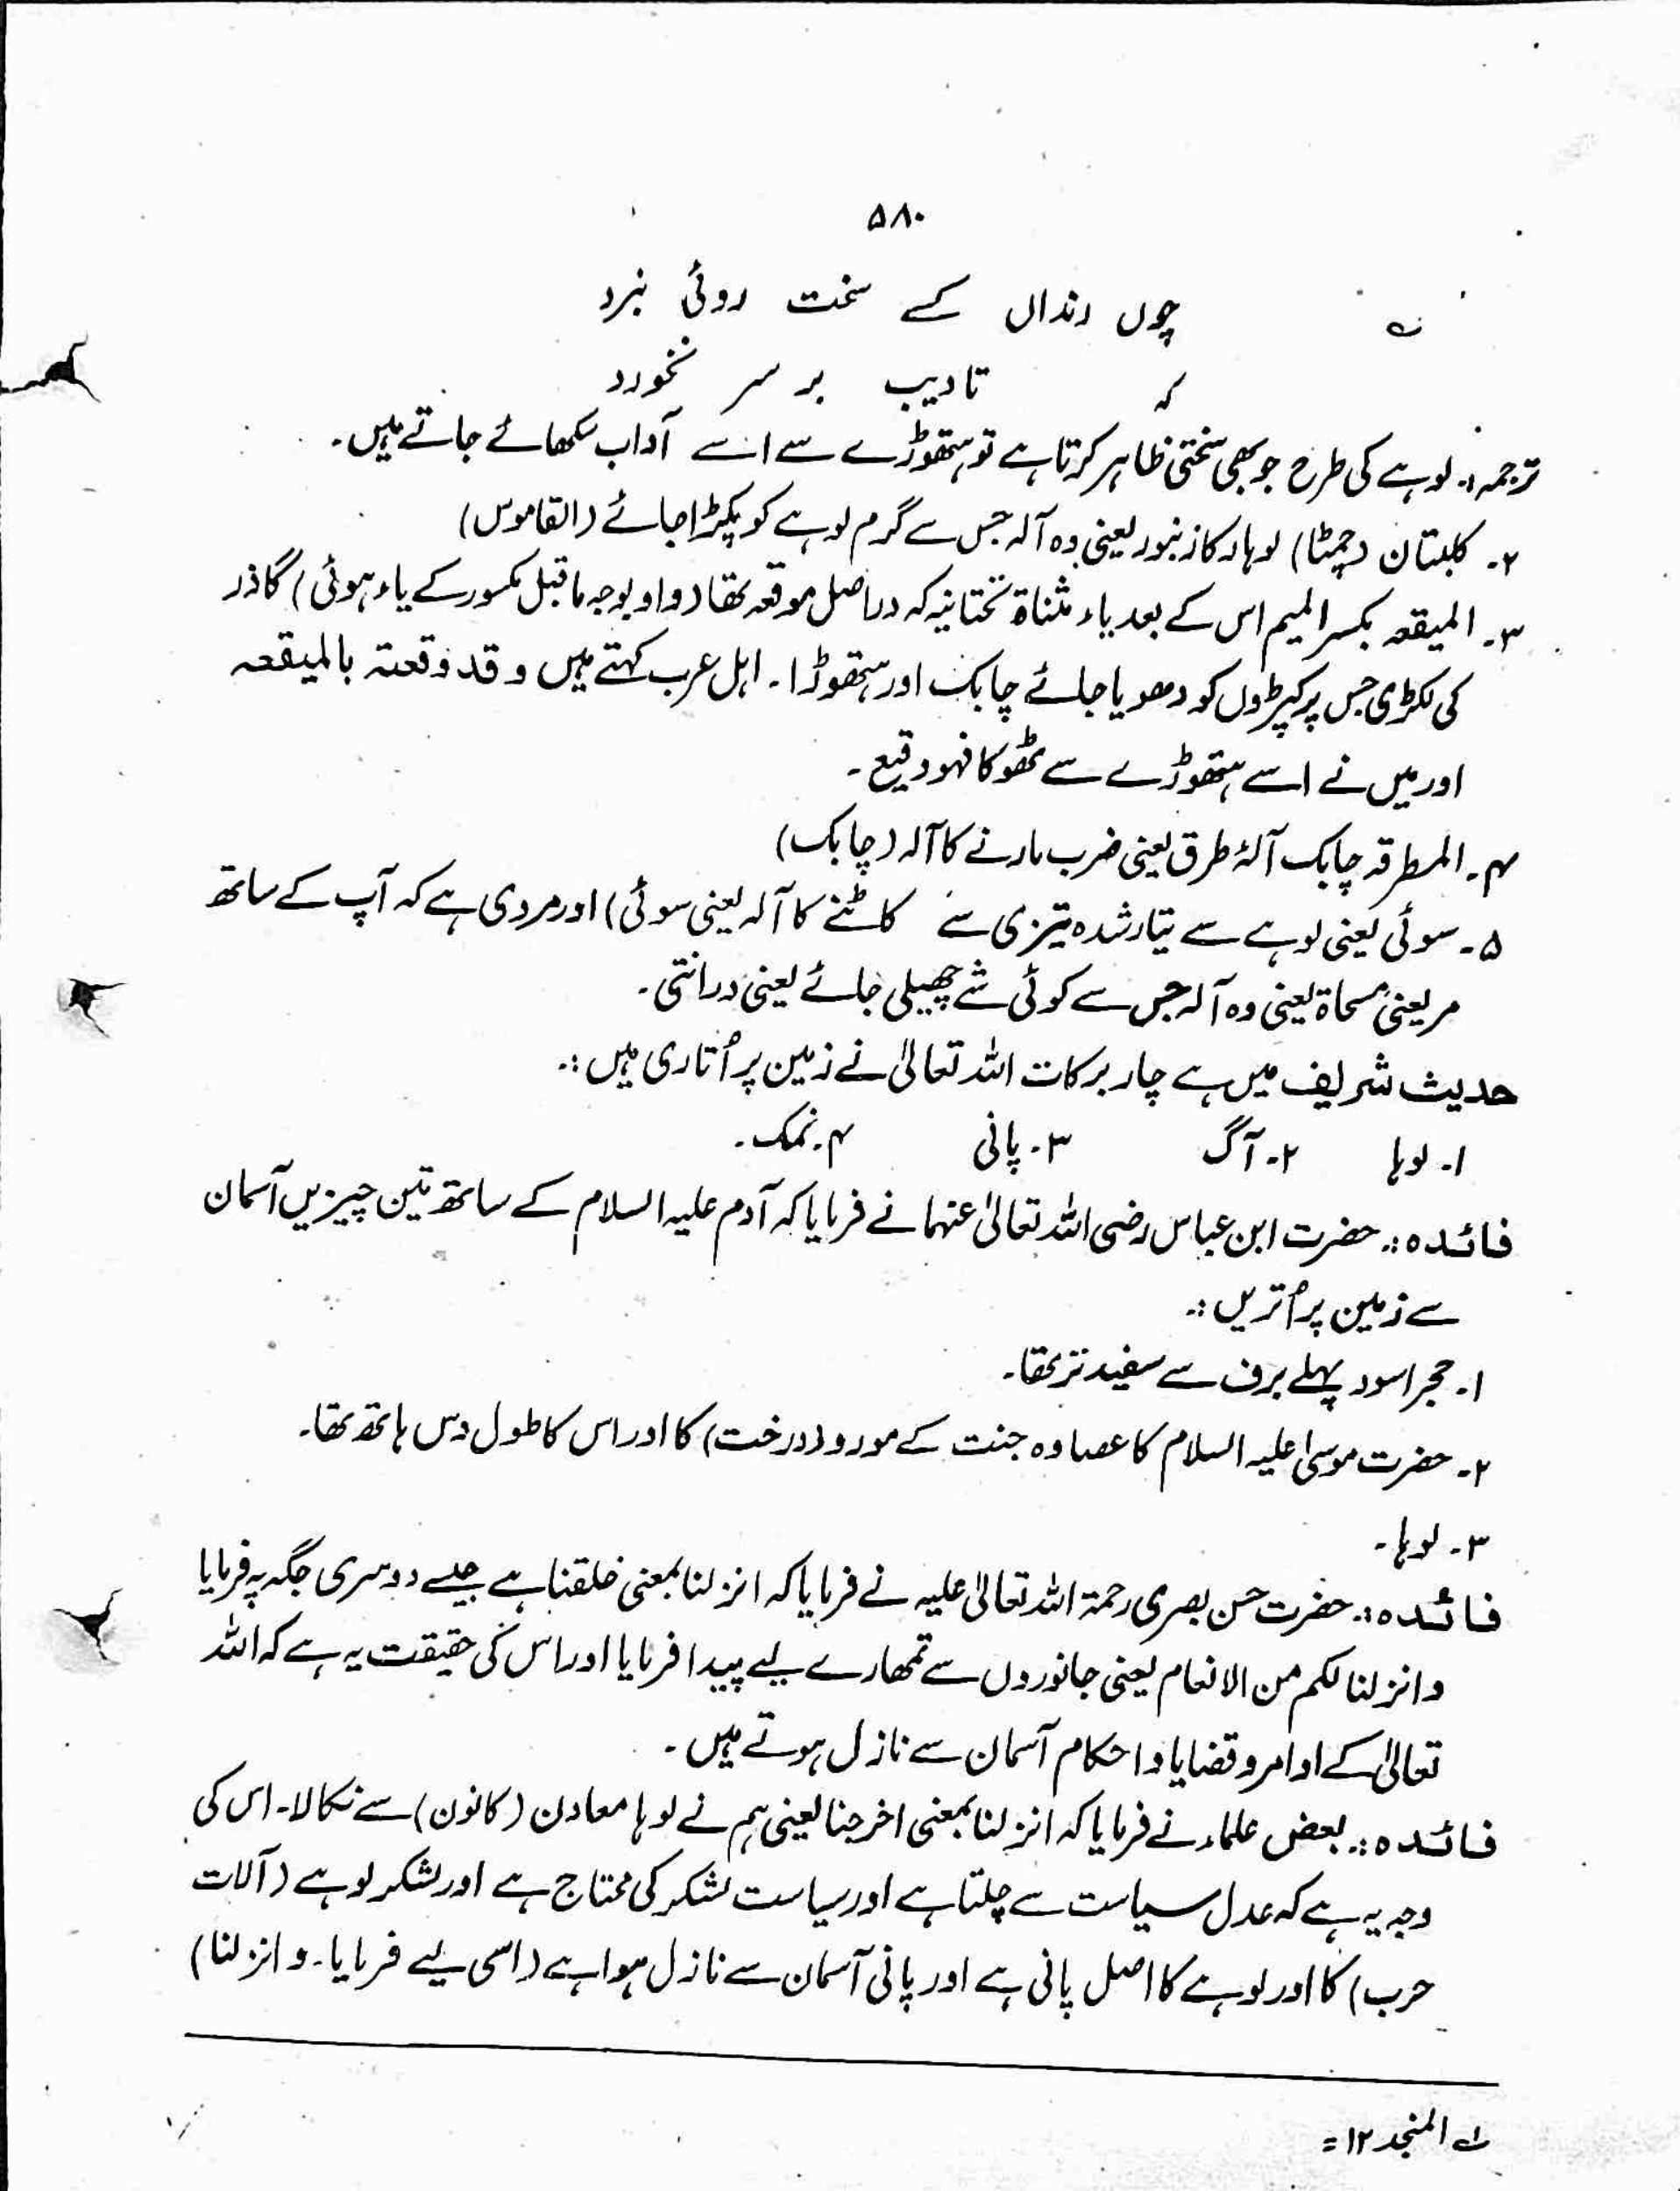 ۵۸۰
چوں دنداں کے سخت روئی نبرد
کہ تادیب بر سر نخورد
ترجمہ:۔ لوہے کی طرح جو بھی سختی ظاہر کرتا ہے تو ہتھوڑے سے اسے آداب سکھائے جاتے ہیں۔
۲۔ کلبتان (چمٹا) لوہار کا زنبور یعنی وہ آلہ جس سے گرم لوہے کو پکڑا جائے (القاموس)
۳۔ المیقعہ بکسر المیم اس کے بعد یاء مثناۃ تحتانیہ کہ دراصل موقعہ تھا (واو بوجہ ماقبل مکسور کے یاء ہوئی) گاذر
کی لکڑی جس پر کپڑوں کو دھویا جائے چابک اور ہتھوڑا۔ اہل عرب کہتے ہیں وقد وقعتہ بالمیقعہ
اور میں نے اسے ہتھوڑے سے ٹھوکا فہو وقیع۔
۴۔ المطرقہ چابک آلۂ طرق یعنی ضرب مارنے کا آلہ (چابک)
۵۔ سوئی یعنی لوہے سے تیار شدہ تیزی سے کاٹنے کا آلہ یعنی سوئی) اور مروی ہے کہ آپ کے ساتھ
مر یعنی مسحاۃ یعنی وہ آلہ جس سے کوئی شے چھیلی جائے یعنی درانتی۔
حدیث شریف میں ہے چار برکات اللہ تعالیٰ نے زمین پر اُتاری ہیں:۔
۱۔ لوہا ۲۔ آگ ۳۔ پانی ۴۔ نمک۔
فائدہ:۔ حضرت ابن عباس رضی اللہ تعالیٰ عنہما نے فرمایا کہ آدم علیہ السلام کے ساتھ تین چیزیں آسمان
سے زمین پر اُتریں:۔
۱۔ حجر اسود پہلے برف سے سفید تر تھا۔
۲۔ حضرت موسیٰ علیہ السلام کا عصا وہ جنت کے مورو (درخت) کا اور اس کا طول دس ہاتھ تھا۔
۳۔ لوہا۔
فائدہ:۔ حضرت حسن بصری رحمۃ اللہ تعالیٰ علیہ نے فرمایا کہ انزلنا بمعنی خلقنا ہے جیسے دوسری جگہ پہ فرمایا
وانزلنا لکم من الانعام یعنی جانوروں سے تمھارے لیے پیدا فرمایا اور اس کی حقیقت یہ ہے کہ اللہ
تعالیٰ کے اوامر و قضایا و احکام آسمان سے نازل ہوتے ہیں۔
فائدہ:۔ بعض علماء نے فرمایا کہ انزلنا بمعنی اخرجنا یعنی ہم نے لوہا معادن (کانوں) سے نکالا۔ اس کی
وجہ یہ ہے کہ عدل سیاست سے چلتا ہے اور سیاست لشکر کی محتاج ہے اور لشکر لوہے (آلات
حرب) کا اور لوہے کا اصل پانی ہے اور پانی آسمان سے نازل ہوا ہے (اسی لیے فرمایا۔ وانزلنا)
لہ المنجد ۱۲=